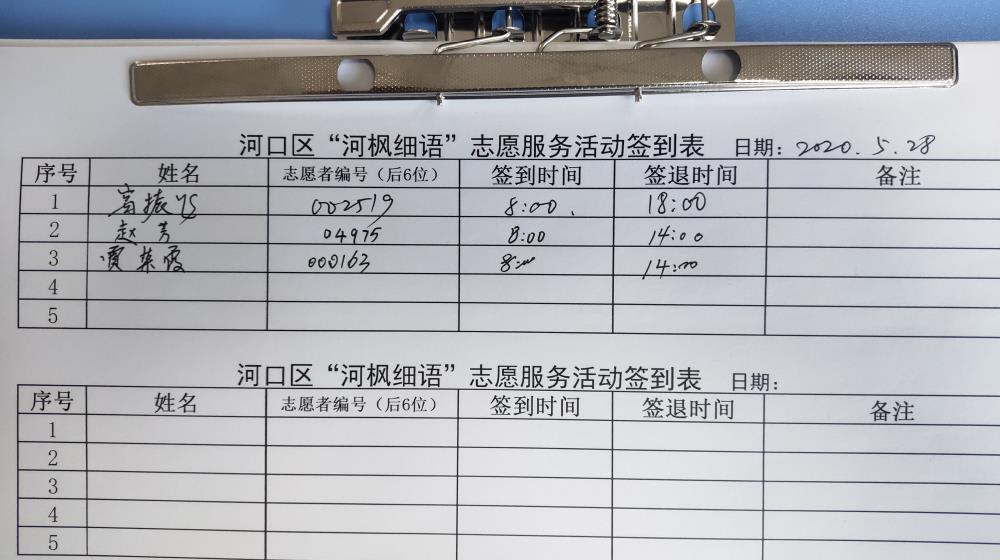 河口区“河枫细语”志愿服务活动签到表 日期：2020.5.28
序号 姓名 志愿者编号（后6位） 签到时间 签退时间 备注
1 002519 8:00 18:00
2 赵芳 04975 8:00 14:00
3 贾荣霞 000163 8:00 14:00
4
5
河口区“河枫细语”志愿服务活动签到表 日期：
序号 姓名 志愿者编号（后6位） 签到时间 签退时间 备注
1
2
3
4
5